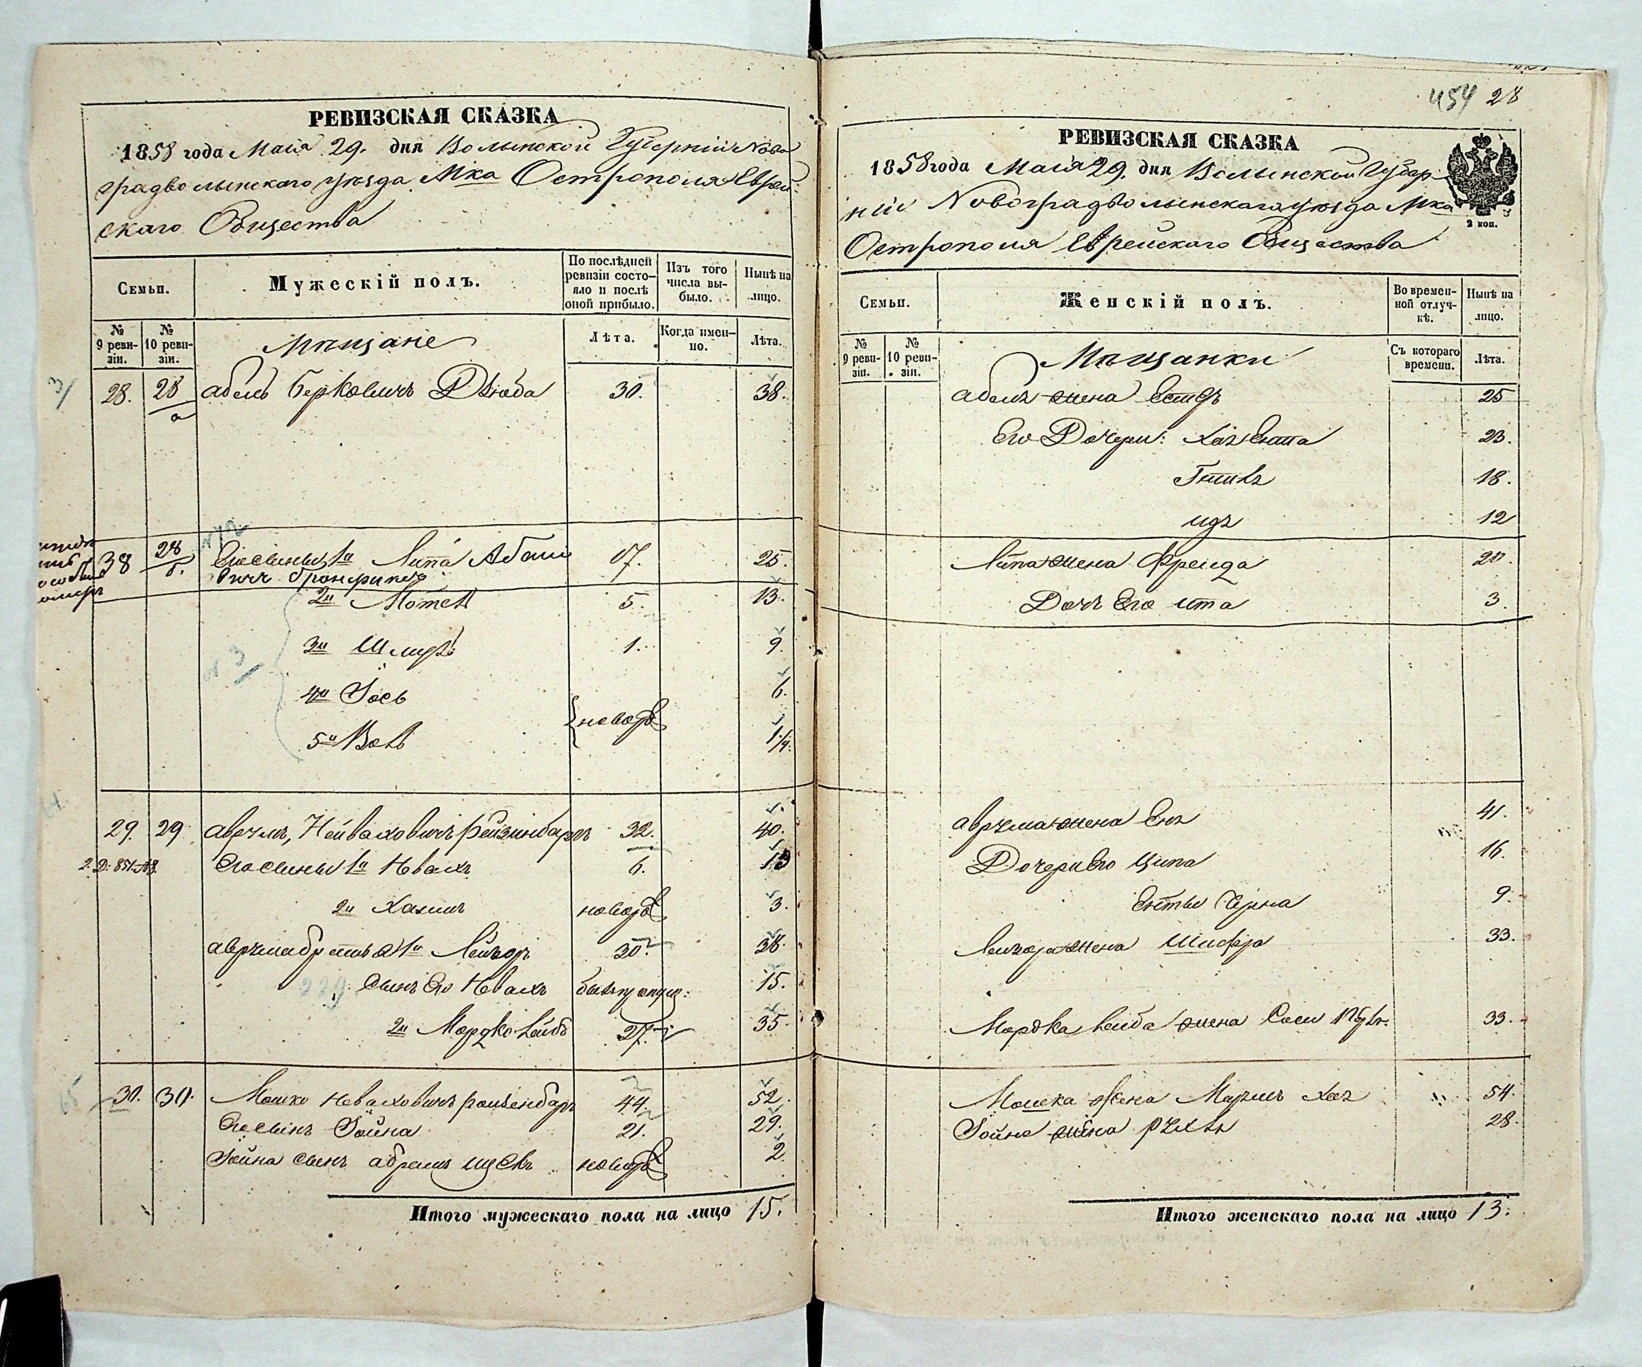 454 28
РЕВИЗСКАЯ СКАЗКА
1858 года Маія 29. дня Волынской Губерніи Ново
градволынскаго уѣзда Мка Острополя Еврей-
скаго Общества
Семьи. Мужескій полъ. По послѣдней ревизіи состояло и послѣ оной прибыло. Изъ того числа выбыло. Нынѣ на лицо.
№ 9 ревизіи. № 10 ревизіи. Мѣщане Лѣта. Когда именно. Лѣта.
28. 28 а Абель Берковичъ Дзюба 30. 38.
38 28 б. Его сыны 1й Липа Абели 17. 25.
вичъ
2й Мотель 5. 13.
3й Шмуль 1. 9
4й Іось новорож 6.
5й Волъ 1 1/4.
29. 29. Аврумъ, Неваховичъ Рейзинбаргъ 32. 40.
Его сыны 1й Невахъ 6. 13
2й Хаимъ новорож 3.
Аврума братья 1й Лейзоръ 30. 38.
Сынъ Его Невахъ 15.
2й Мордко Лейба 27. 35.
30. 30. Мошко Неваховичъ 44. 52.
Его сынъ Зойна 21. 29.
Зойна сынъ Абрамъ новорож 2.
Итого мужескаго пола на лицо 15.
РЕВИЗСКАЯ СКАЗКА
1858 года Маія 29. дня Волынской Губер
ніи Новоградволынскаго уѣзда Мка
Острополя Еврейскаго Общества
2 коп.
Семьи. Женскій полъ. Во временной отлучкѣ. Нынѣ на лицо.
№ 9 ревизіи. № 10 ревизіи. Мѣщанки Съ котораго времени. Лѣта.
Абеля жена Естеръ 25
Его Дочери: Хая 23.
18.
12
Липа жена Фрейда 20.
Дочь Его Ита 3.
Аврума жена 41.
Дочери Его Ципа 16.
Черна 9.
Лейзора жена Шифра 33.
Мордка Лейба жена 33.
Мошка жена Маримъ Хая 54.
Зойна жена 28.
Итого женскаго пола на лицо 13.